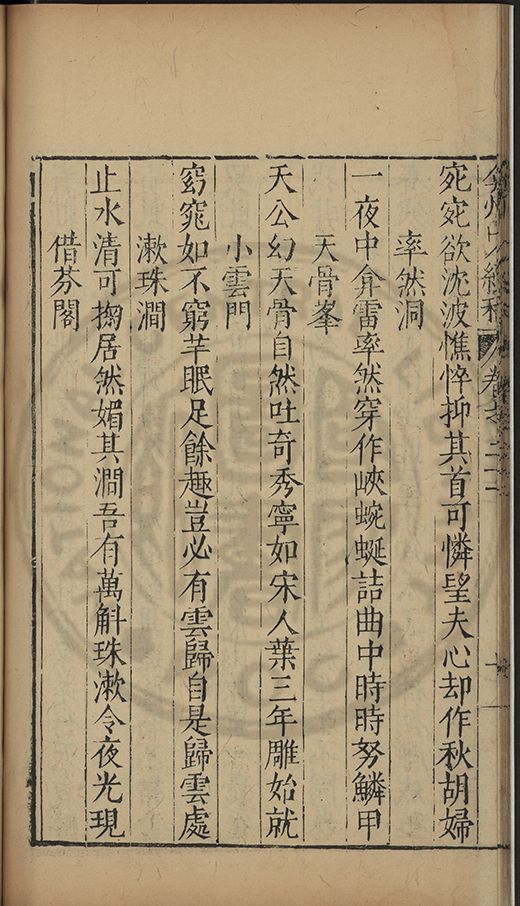 弇州山人續稿 卷之二十
宛宛欲沈波憔悴抑其首可憐望夫心却作秋胡婦
率然洞
一夜中弇雷率然穿作峽蜿蜒詰曲中時時努鱗甲
天骨峯
天公幻天骨自然吐奇秀寧如宋人葉三年雕始就
小雲門
窈窕如不窮芊眠足餘趣豈必有雲歸自是歸雲處
漱珠澗
止水清可掬居然媚其澗吾有萬斛珠漱令夜光現
借芬閣